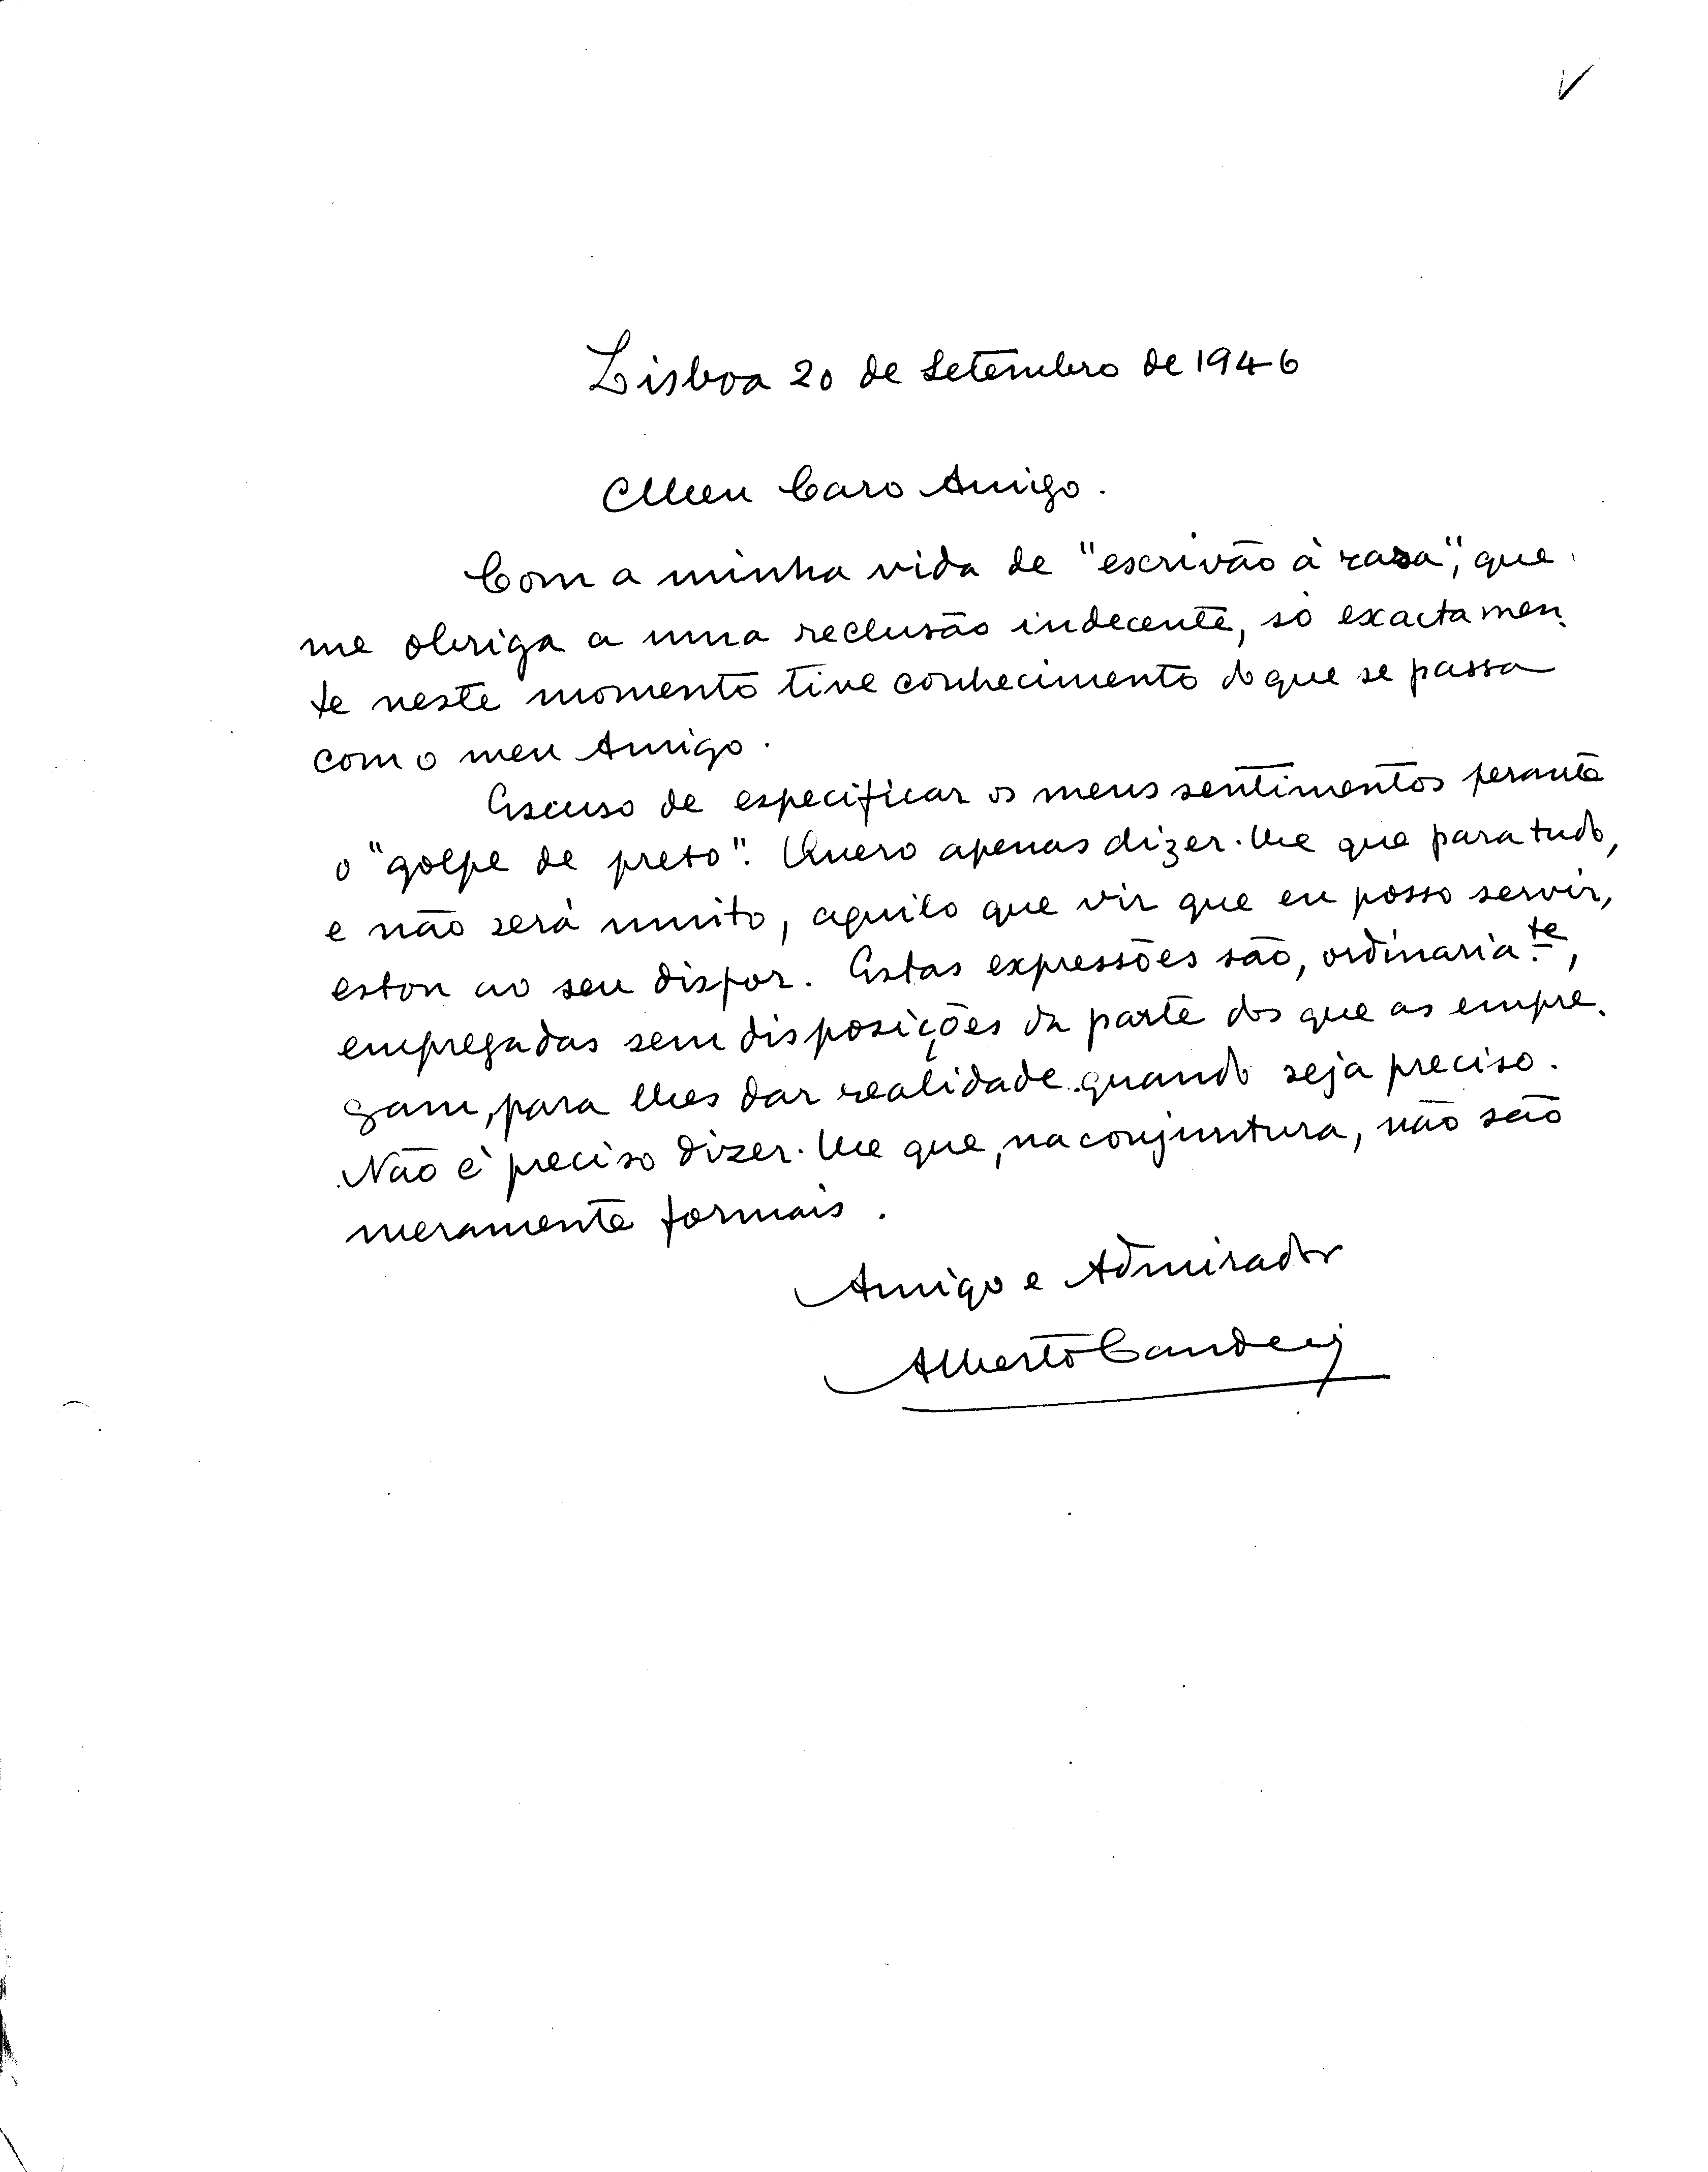 Lisboa 20 de Setembro de 1946
Meu Caro Amigo.
Com a minha vida de "escrivão à rasa", que
me obriga a uma reclusão indecente, só exactamen-
te neste momento tive conhecimento do que se passa
com o meu Amigo.
Escuso de especificar os meus sentimentos perante
o "golpe de preto". Quero apenas dizer-lhe que para tudo,
e não será muito, aquilo que vir que eu posso servir,
estou ao seu dispor. Estas expressões são, ordinaria.te,
empregadas sem disposições da parte dos que as empre-
gam, para lhes dar realidade quando seja preciso.
Não é preciso dizer-lhe que, na conjuntura, não são
meramente formais.
Amigo e Admirador
Alberto Candeias